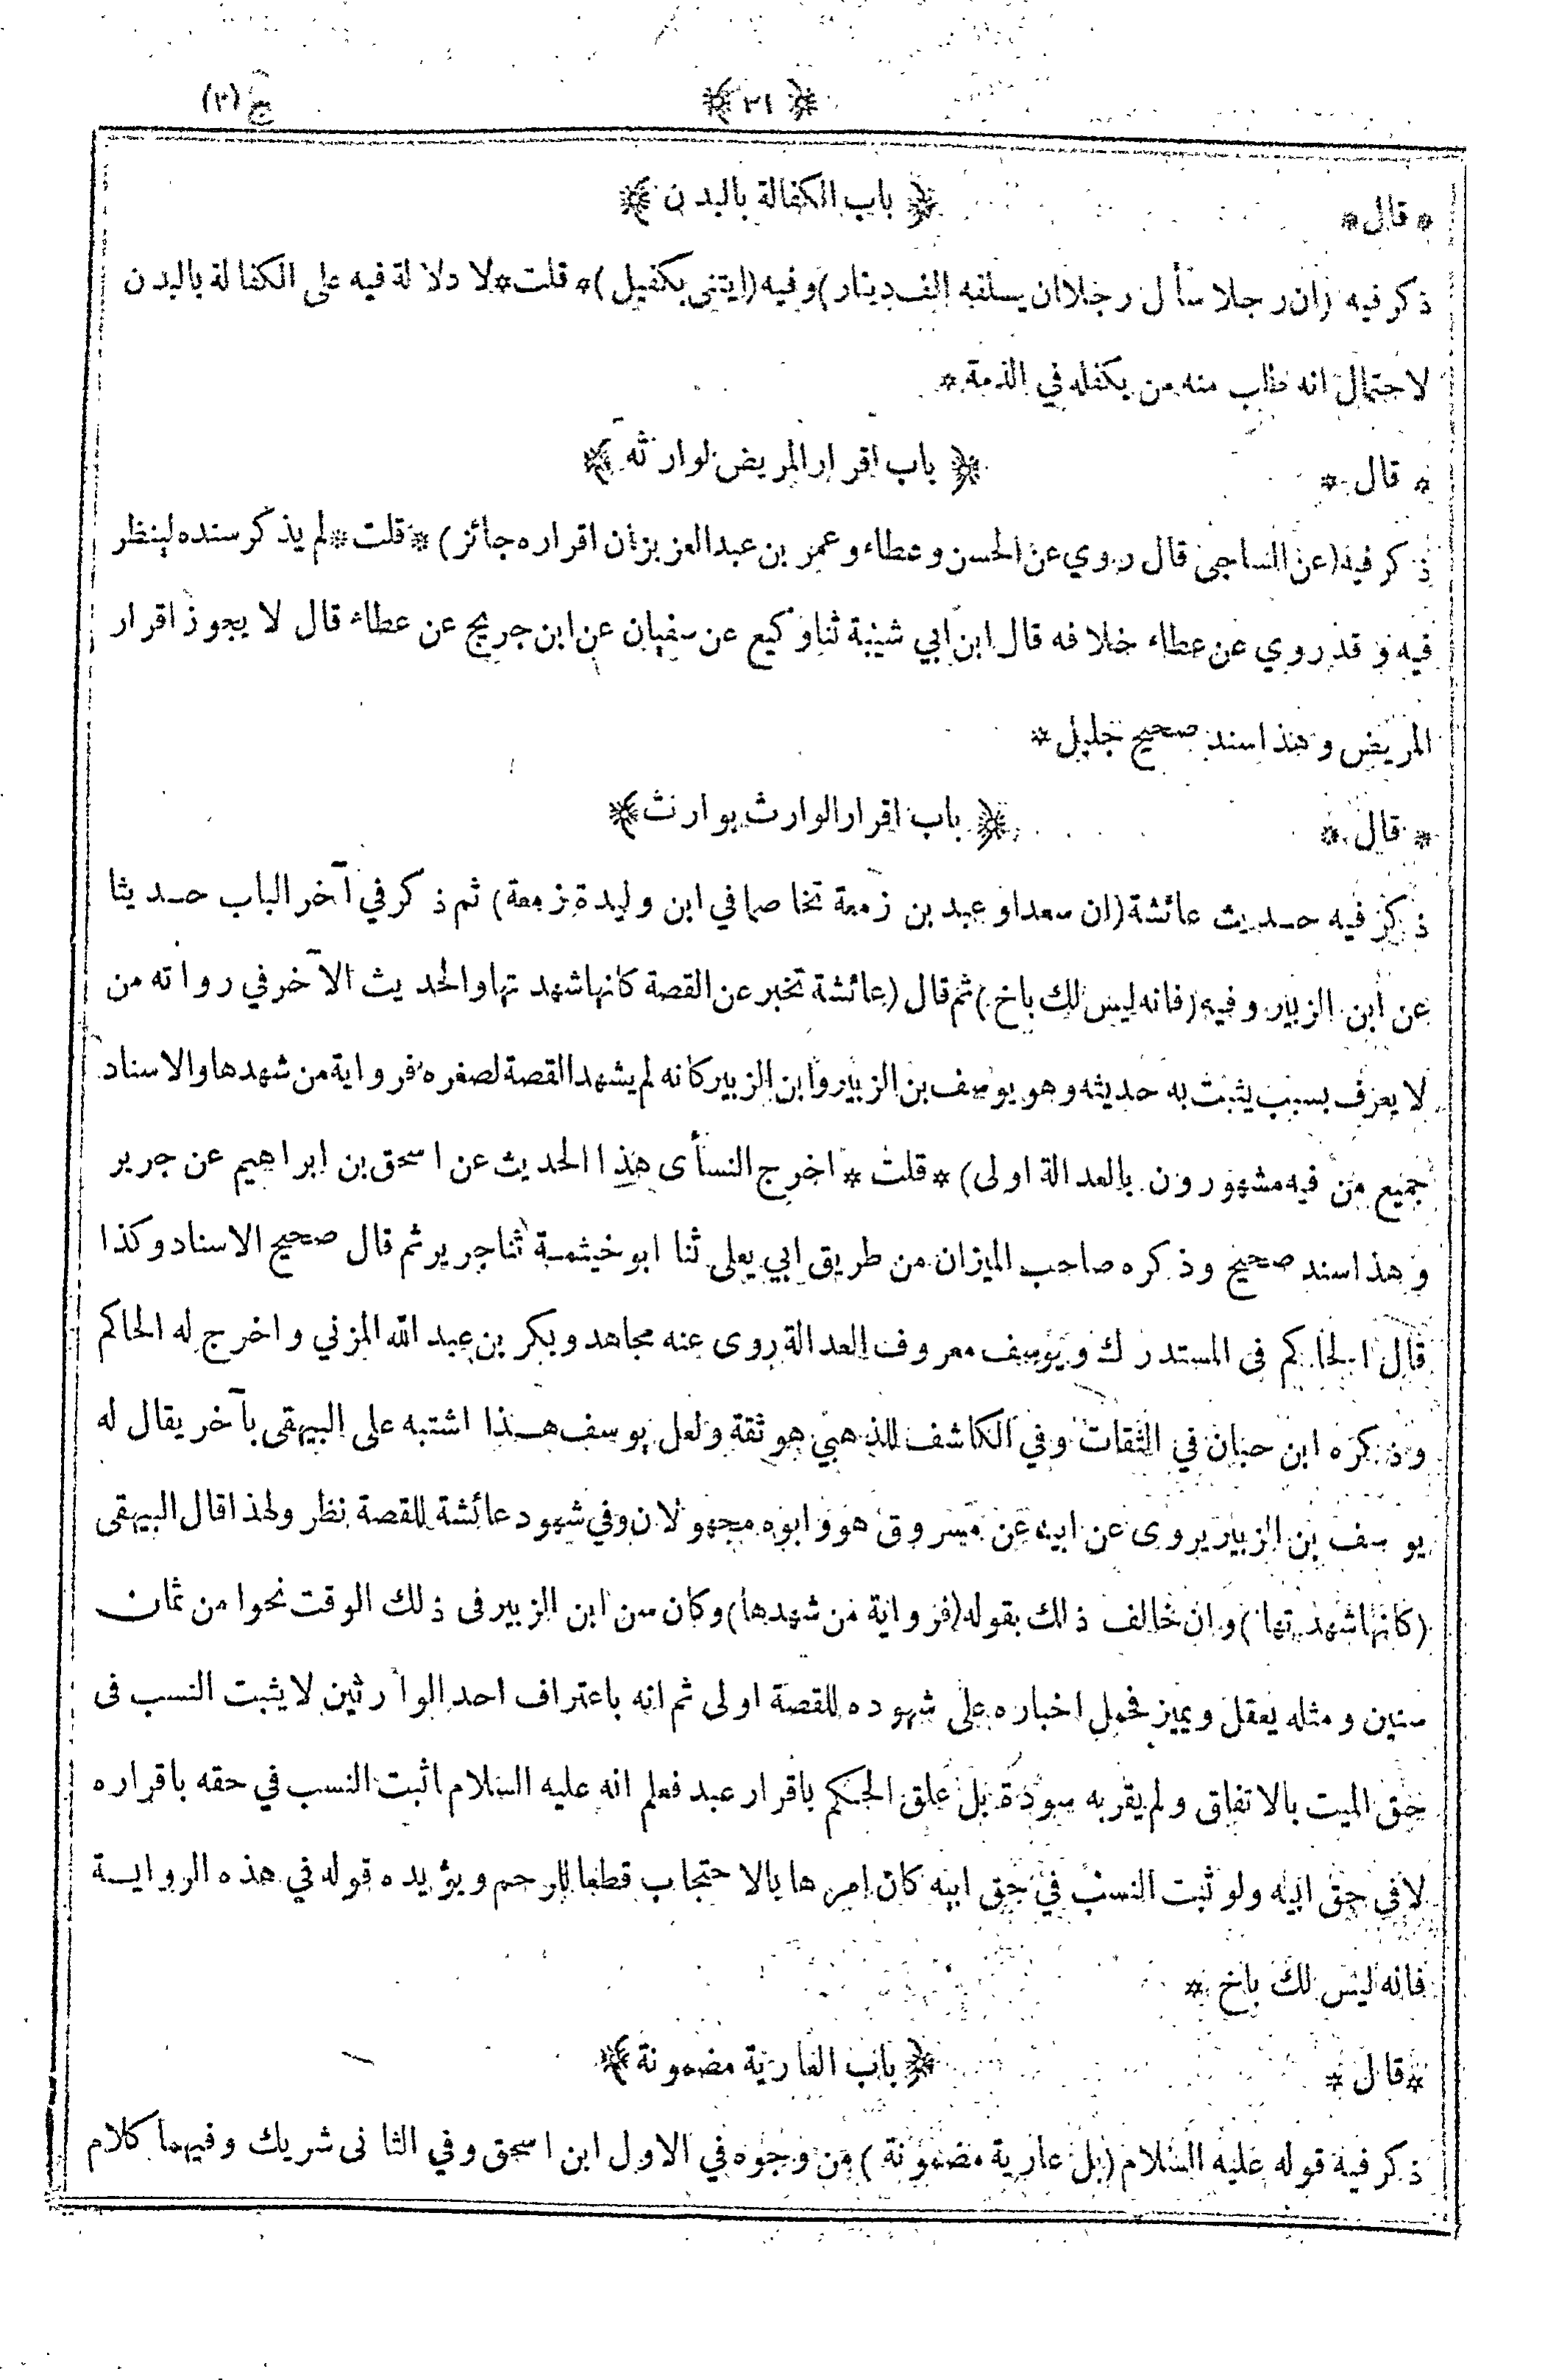 ﴿ ٣١ ﴾ ج (٢)
* قال * ﴿ باب الكفالة بالبدن ﴾
ذكر فيه (ان رجلا سأل رجلا ان يسلفه الف دينار) وفيه (ايتنى بكفيل) * قلت * لا دلالة فيه على الكفالة بالبدن
لاحتمال انه طلب منه من يكفله في الذمة *
* قال * ﴿ باب اقرار المريض لوارثه ﴾
ذكر فيه (عن الساجى قال روي عن الحسن وعطاء وعمر بن عبد العزيز ان اقراره جائز) * قلت * لم يذكر سنده لينظر
فيه وقد روي عن عطاء خلافه قال ابن ابي شيبة ثنا وكيع عن سفيان عن ابن جريج عن عطاء قال لا يجوز اقرار
المريض وهذا سند صحيح جليل *
* قال * ﴿ باب اقرار الوارث بوارث ﴾
ذكر فيه حديث عائشة (ان سعدا وعبد بن زمعة تخاصما في ابن وليدة زمعة) ثم ذكر في آخر الباب حديثا
عن ابن الزبير وفيه (فانه ليس لك باخ) ثم قال (عائشة تخبر عن القصة كانها شهدتها والحديث الآخر في رواته من
لا يعرف بسبب يثبت به حديثه وهو يوسف بن الزبير وابن الزبير كانه لم يشهد القصة لصغره فرواية من شهدها والاسناد
جميع من فيه مشهورون بالعدالة اولى) * قلت * اخرج النسأى هذا الحديث عن اسحق بن ابراهيم عن جرير
وهذا سند صحيح وذكره صاحب الميزان من طريق ابي يعلى ثنا ابو خيثمة ثنا جرير ثم قال صحيح الاسناد وكذا
قال الحاكم فى المستدرك ويوسف معروف العدالة روى عنه مجاهد وبكر بن عبد الله المزني واخرج له الحاكم
وذكره ابن حبان في الثقات وفي الكاشف للذهبي هو ثقة ولعل يوسف هذا اشتبه على البيهقى بآخر يقال له
يوسف بن الزبير يروى عن ابيه عن مسروق هو وابوه مجهولان وفي شهود عائشة للقصة نظر ولهذا قال البيهقى
(كانها شهدتها) وان خالف ذلك بقوله (فرواية من شهدها) وكان سن ابن الزبير فى ذلك الوقت نحوا من ثمان
سنين ومثله يعقل ويميز فحمل اخباره على شهوده للقصة اولى ثم انه باعتراف احد الوارثين لا يثبت النسب فى
حق الميت بالاتفاق ولم يقر به سودة بل علق الحكم باقرار عبد فعلم انه عليه السلام اثبت النسب في حقه باقراره
لا في حق ابيه ولو ثبت النسب في حق ابيه كان امرها بالاحتجاب قطعا للرحم ويؤيده قوله في هذه الرواية
فانه ليس لك باخ *
* قال * ﴿ باب العارية مضمونة ﴾
ذكر فيه قوله عليه السلام (بل عارية مضمونة) من وجوه في الاول ابن اسحق وفي الثانى شريك وفيهما كلام